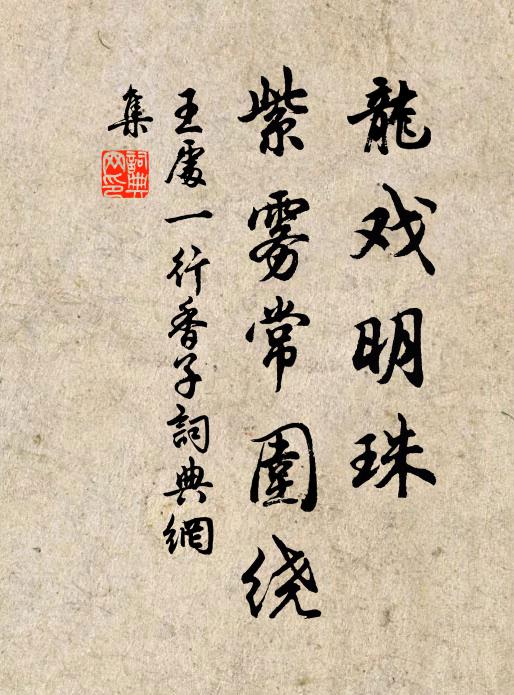 龍戏明珠
紫雾常圍绕
王處一行香子詞典網
集
詞典網印